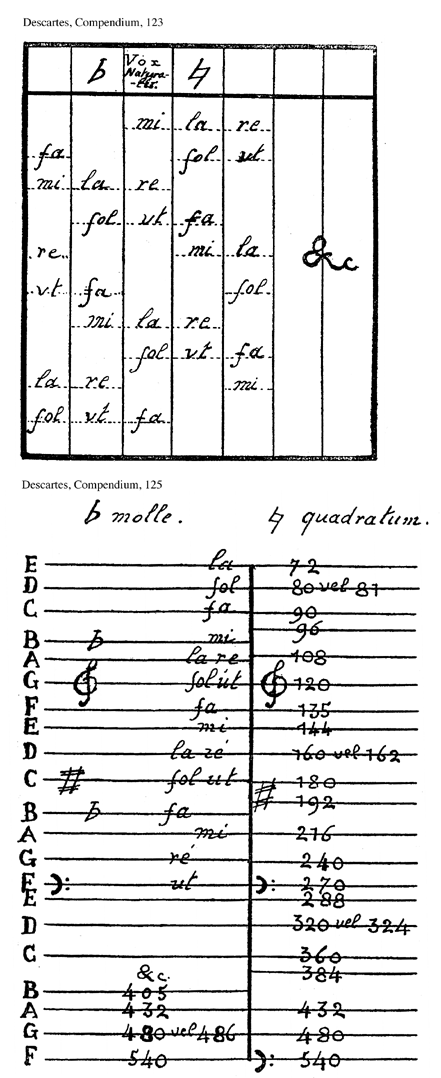 Descartes, Compendium, 123
♭ Vox Natura-les. ♮
mi la re
fa sol ut
mi la re
sol ut fa
re mi la
&c
ut fa sol
mi la re
sol ut fa
la re mi
sol ut fa
Descartes, Compendium, 125
♭ molle. ♮ quadratum.
E la 72
D sol 80 vel 81
C fa 90
96
B ♭ mi
A la re 108
G sol ut 120
F fa 135
E mi 144
D la ré 160 vel 162
C sol ut 180
192
B ♭ fa
A mi 216
G ré 240
F ut 270
E 288
D 320 vel 324
C 360
384
&c.
B 405
A 432 432
G 480 vel 486 480
F 540 540